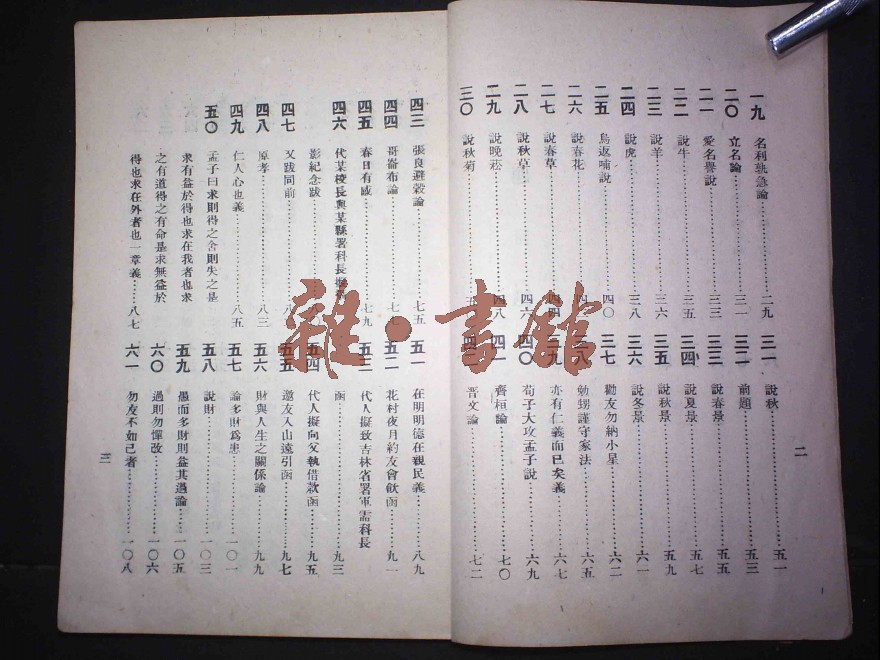 一九 名利孰急論 二九
二〇 立名論 三一
二一 愛名譽說 三三
二二 說牛 三五
二三 說羊 三六
二四 說虎 三八
二五 烏返哺說 四〇
二六 說春花 四三
二七 說春草 四四
二八 說秋草 四六
二九 說晚菘 四八
三〇 說秋菊 五
三一 說秋 五一
三二 前題 五三
三三 說春景 五五
三四 說夏景 五七
三五 說秋景 五九
三六 說冬景 六一
三七 勸友勿納小星 六二
三八 勉甥謹守家法 六五
三九 亦有仁義而已矣義 六七
四〇 荀子大攻孟子說 六九
四一 齊桓論 七〇
四二 晋文論 七二
二
四三 張良避穀論 七五
四四 哥崙布論 七七
四五 春日有感 七九
四六 代某校長與某縣署科長
影紀念跋 八〇
四七 又跋同前 八
四八 原孝 八三
四九 仁人心也義 八五
五〇 孟子曰求則得之舍則失之是
求有益於得也求在我者也求
之有道得之有命是求無益於
得也求在外者也一章義 八七
五一 在明明德在親民義 八九
五二 花村夜月約友會飲函 九一
五三 代人擬致吉林省署軍需科長
函 九三
五四 代人擬向父執借款函 九五
五五 邀友入山遠引函 九七
五六 財與人生之關係論 九九
五七 論多財爲患 一〇一
五八 說財 一〇三
五九 愚而多財則益其過論 一〇五
六〇 過則勿憚改 一〇六
六一 勿友不如己者 一〇八
三
雜·書館